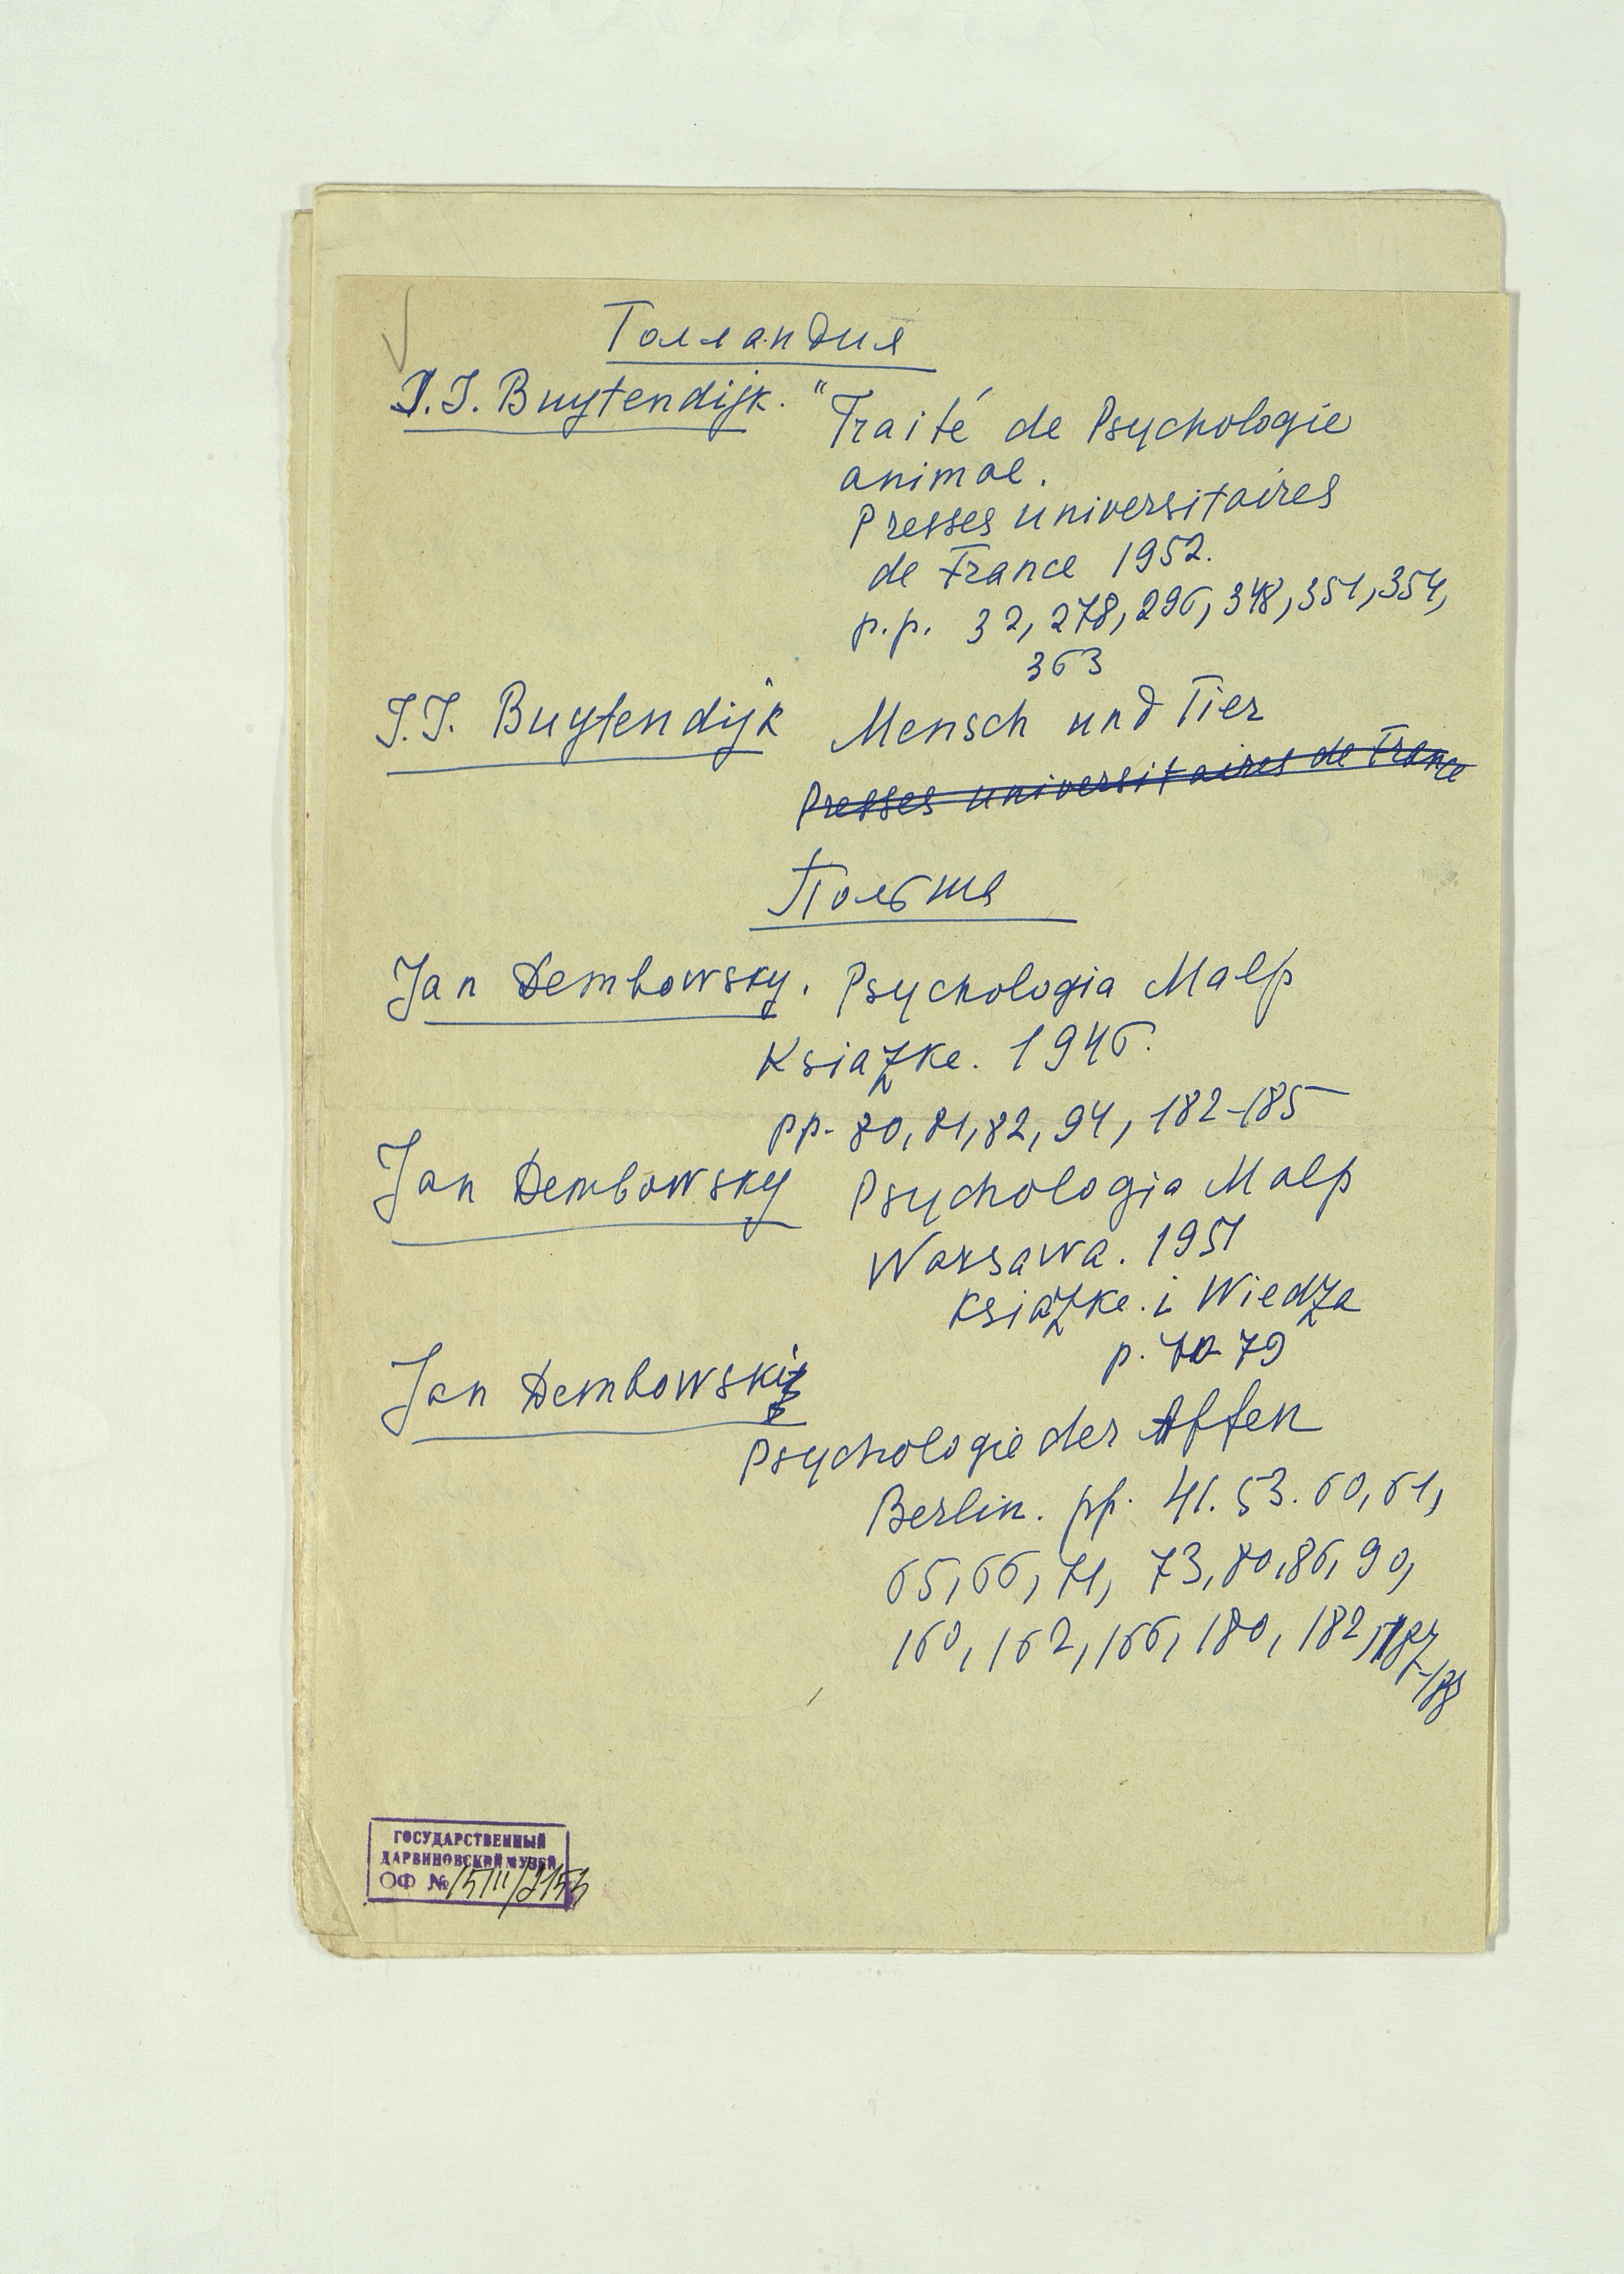 Голландия
J.J. Buytendijk. "Traité de Psychologie
animal.
Presses universitaires
de France 1952.
p.p. 32, 278, 296, 348, 351, 354,
363
J.J. Buytendijk Mensch und Tier
Presses universitaires de France
Польша
Jan Dembowsky. Psychologia Malp
Książke. 1946.
pp. 80, 81, 82, 94, 182-185
Jan Dembowsky Psychologia Malp
Warsawa. 1951
Książke. i Wiedza
p. 79
Jan Dembowski
Psychologie der Affen
Berlin. pp. 41. 53. 60, 61,
65, 66, 71, 73, 80, 86, 90,
160, 162, 166, 180, 182, 187
-188
ГОСУДАРСТВЕННЫЙ
ДАРВИНОВСКИЙ МУЗЕЙ
ОФ №